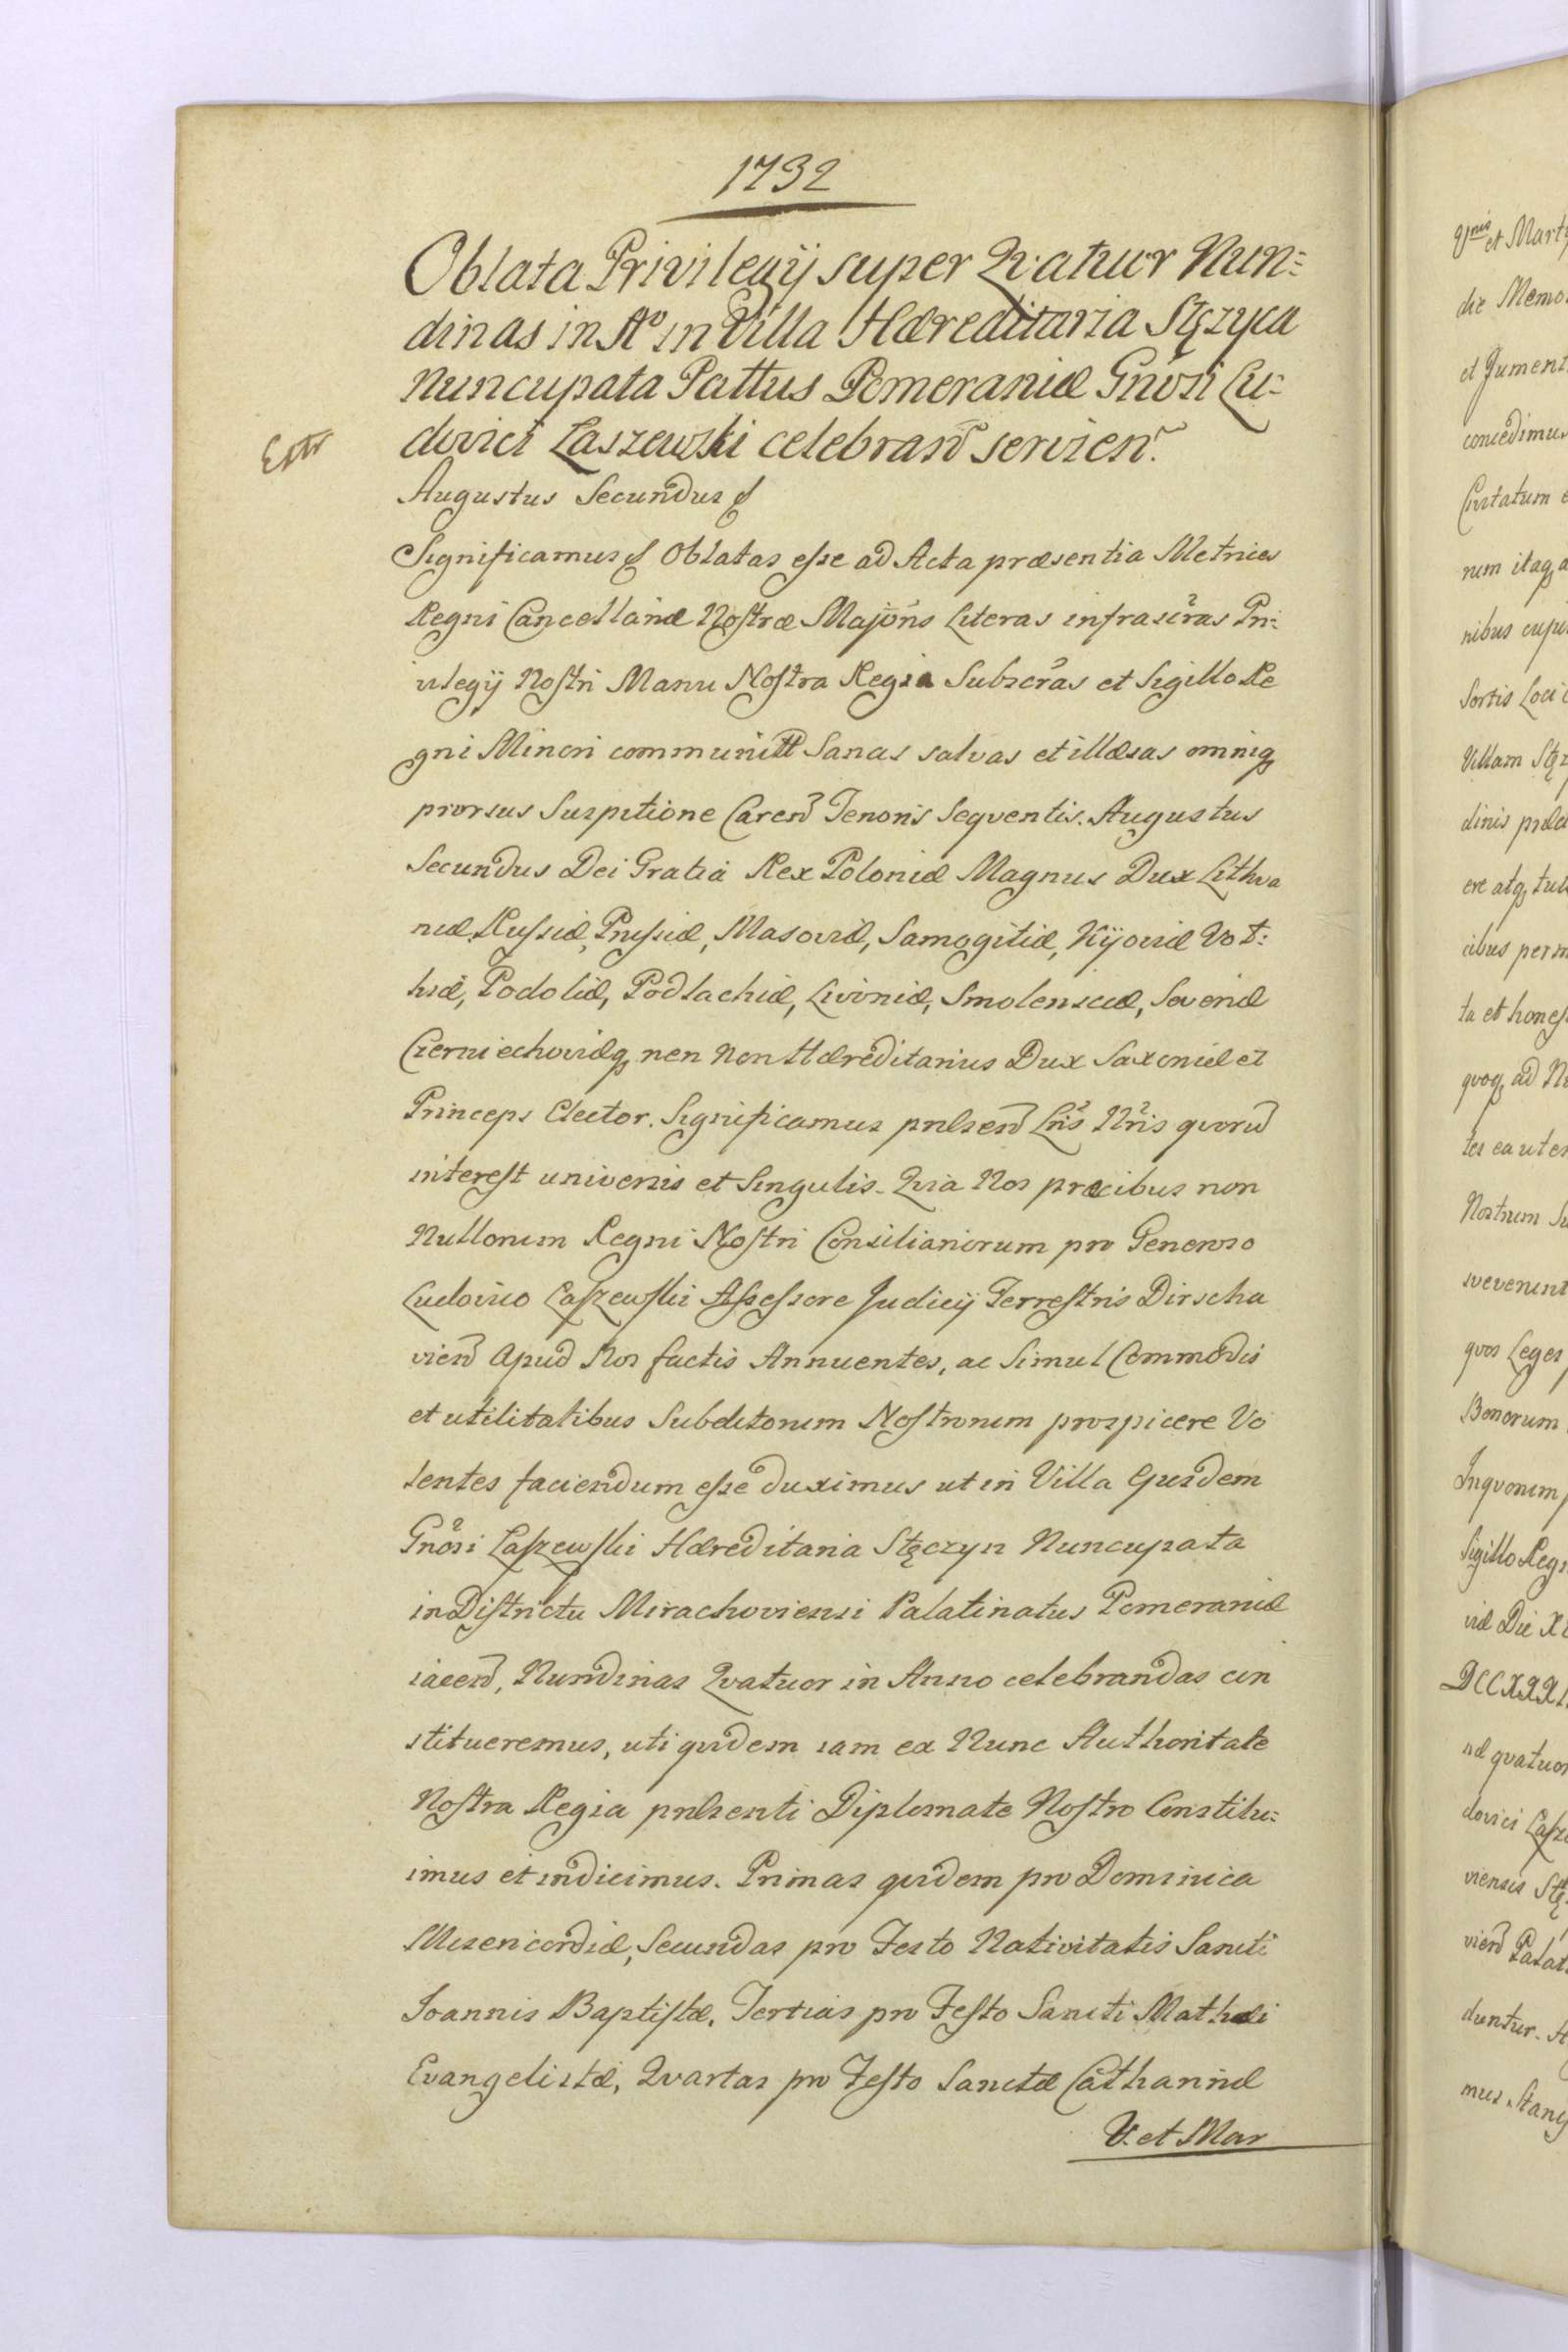 1732
Oblata Privilegij super Qvatuor Nun=
dinas in Aº in Villa Hæreditaria Stęzyca
Nuncupata Pattus Pomeraniæ Gnosi Lu=
dovici Laszewski celebrand servien.
Extr
Augustus Secundus &
Significamus & Oblatas esse ad Acta præsentia Metrices
Regni Cancellariæ Nostræ Majoris Literas infrascras Pri=
vilegij Nostri Manu Nostra Regia Subscras et Sigillo Re
gni Minori communitt Sanas salvas et illæsas omniq
prorsus Suspitione Caren Tenoris Seqventis. Augustus
Secundus Dei Gratia Rex Poloniæ Magnus Dux Lithva
niæ, Russiæ, Prussiæ, Masoviæ, Samogitiæ, Kijoviæ Vol=
hiæ, Podoliæ, Podlachiæ, Livoniæ, Smolensciæ, Severiæ
Czerniechoviæq nen non Hæreditarius Dux Saxoniæ et
Princeps Elector. Significamus præsen Lris Nris qvoru
interest universis et Singulis. Qvia Nos præcibus non
Nullorum Regni Nostri Consiliariorum pro Generoso
Ludovico Laszewski Assessore Judicij Terrestris Dirscha
vien apud Nos factis Annuentes, ac Simul Commodis
et utilitatibus Subditorum Nostrorum prospicere Vo
lentes faciendum esse duximus ut in Villa Ejusdem
Gnosi Laszewski Hæreditaria Stęczyn Nuncupata
in Districtu Mirachoviensi Palatinatus Pomeraniæ
iacen, Nundinas Qvatuor in Anno celebrandas con
stitueremus, uti qvidem iam ex Nunc Authoritate
Nostra Regia præsenti Diplomate Nostro Constitu=
imus et indicimus. Primas qvidem pro Dominica
Misericordiæ, Secundas pro Festo Nativitatis Sancti
Joannis Baptistæ, Tertias pro Festo Sancti Mathæi
Evangelistæ, Qvartas pro Festo Sanctæ Catharinæ
V. et Mar
Vnis et Mart
die Memo
et Jument
concedimus
Civitatum
rum itaq a
nibus cuju
Sortis Loci
Villam Stęz
dinis præd
ere atq tu
cibus perm
ta et hones
qvoq ad Nu
tes ea ut e
Nostrum Su
svevenint
qvos Leges
Bonorum
In qvorum
Sigillo Reg
viæ Die X
DCCXXXI
næ qvatuor
dovici Lasz
viensis Stę
vien Palat
duntur.
mus. Stani